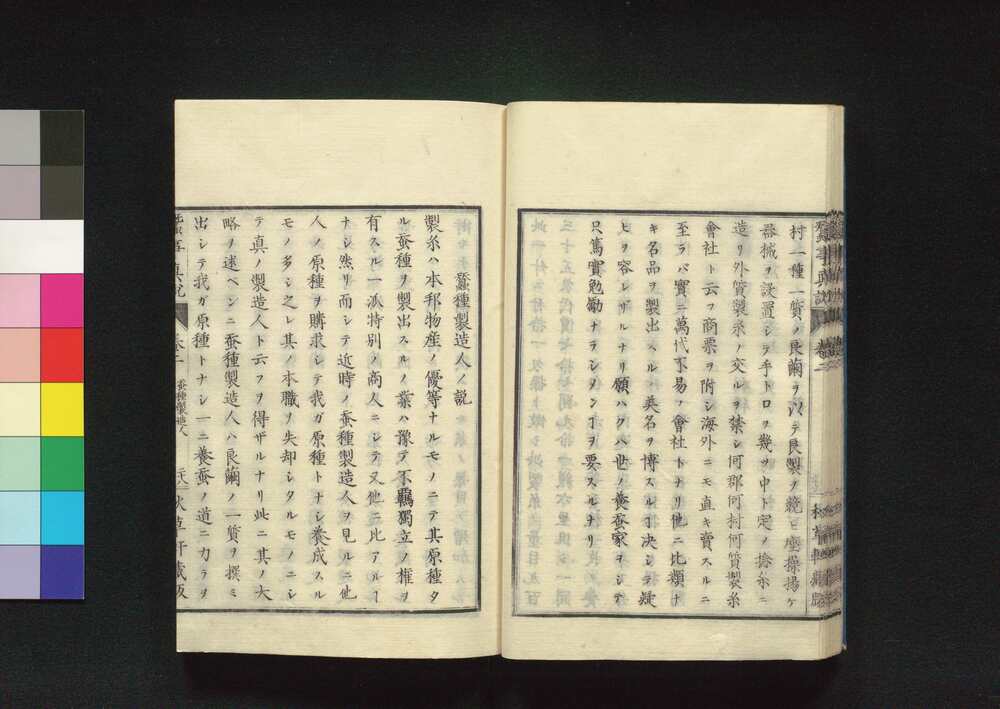 村一種一質ノ良繭ヲ以テ良製ヲ競ヒ塵操揚ケ
器械ヲ設置シテ手トロヲ幾ヲ中ト定ノ捻糸ニ
造リ外質製糸ノ交ルヲ禁シ何郡何村何質製糸
會社ト云フ商票ヲ附シ海外ニモ直キ賣スルニ
至ラバ實ニ萬代不易ノ會社トナリ他ニ比類ナ
キ名品ヲ製出スベル英名ヲ博スルヿ决シテ疑
ヒヲ容レザルナリ願ハクハ世ノ養蚕家ヲシテ
只篤實勉勵ナラシメンヿヲ要スルナリ
蚕種製造人ノ説
製糸ハ本邦物産ノ優等ナルモノニテ其原種タ
ル蚕種ヲ製出スルノ業ハ豫テ不羈獨立ノ権ヲ
有スル一派特别ノ商人ニシテ又他ニ比アルヿ
ナシ然リ而シテ近時ノ蚕種製造人ヲ見ルニ他
人ノ原種ヲ購求シテ我ガ原種トナシ養成スル
モノ多シ之レ其ノ本職ヲ失却シタルモノニシ
テ真ノ製造人ト云フヲ得ザルナリ此ニ其ノ大
略ヲ述ベンニ蚕種製造人ハ良繭ノ一質ヲ撰ミ
出シテ我ガ原種トナシ一ニ養蚕ノ道ニ力ラヲ